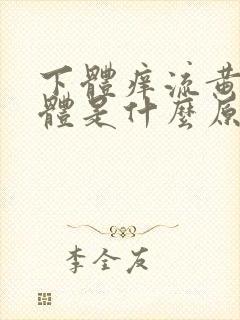 下體痒流黄
體是什麼原
李全友